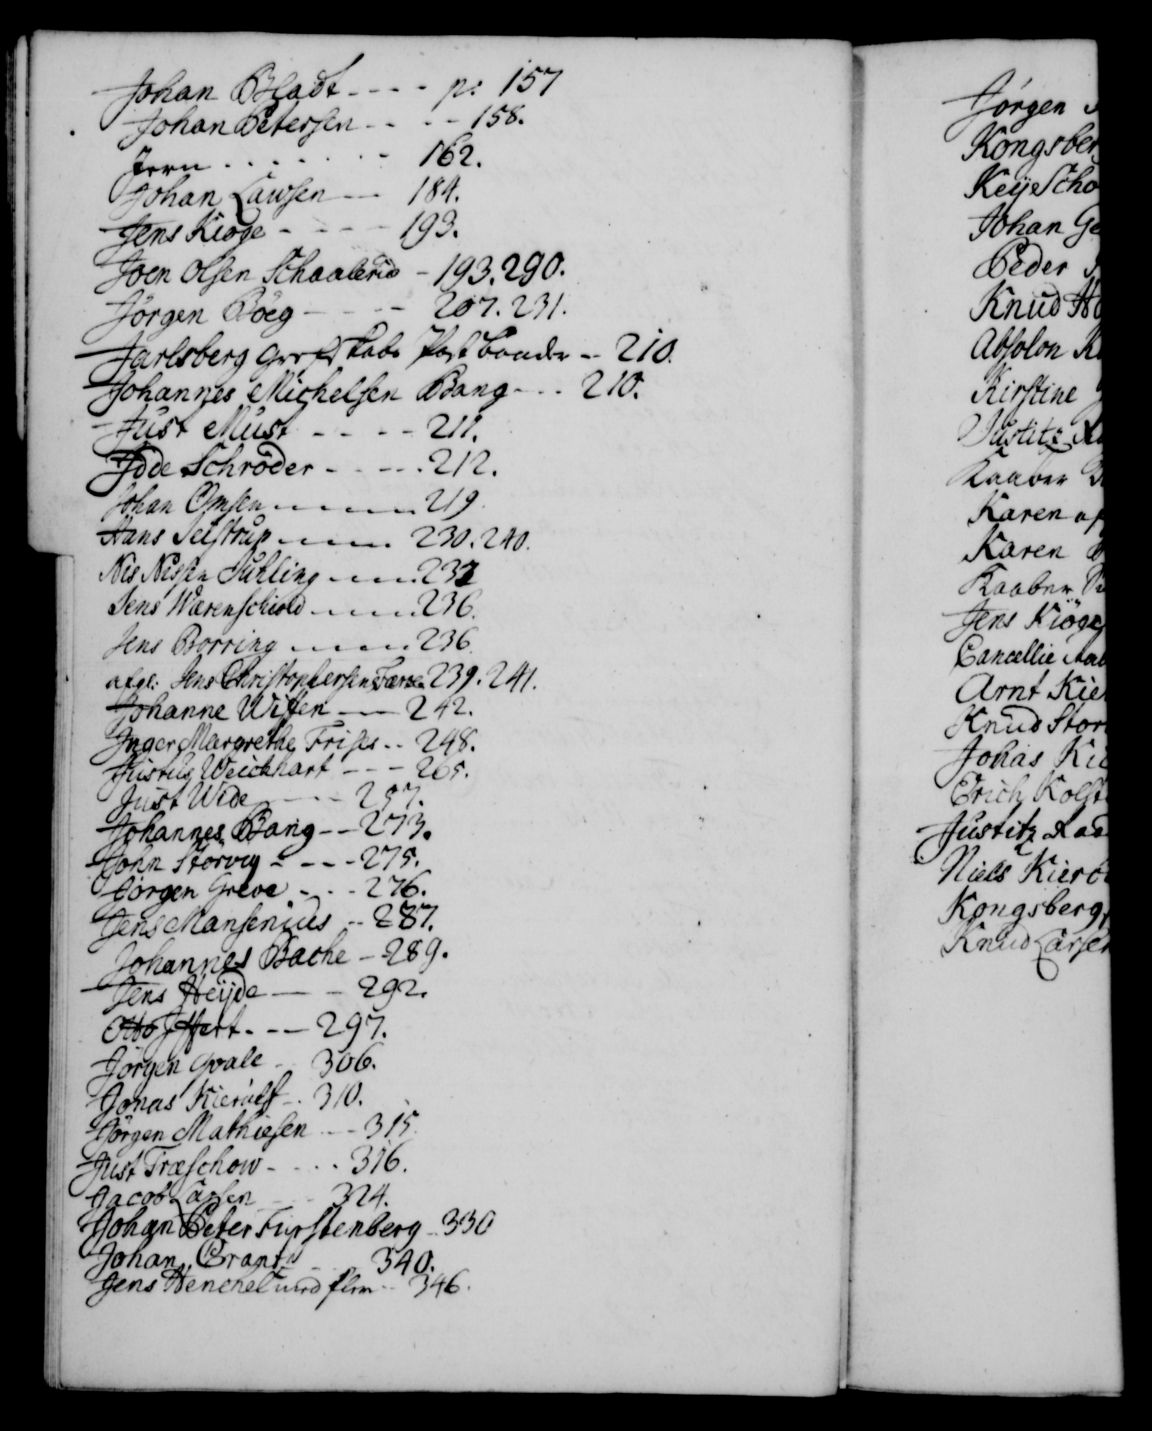 Johan Bladt - - - - p: 157
Johan Petersen - - - - 158.
Jern . . . . . . - 162.
Johan Lawsen - - - 184.
Jens Kiøge - - - - - 193.
Joen Olsen - 193. 290.
Jörgen Böeg - - - - 207. 231.
Jarlsberg Grefskabs Bönder - - 210.
Johannes Michelsen Bang - - . 210.
Just Must - - - - 211.
Ide Schröder - - - . . 212.
Johan 219
Hans Seistrup 230. 240.
Nis Nissen Juhling 232
Jens Wærenschiold 236.
Jens Borring 236
afgl: Jens Christophersen 239. 241.
Johanne Wissen - - - 242.
Inger Margrethe Friises - - 248.
Justus Weichhart - - - 265.
Just Wide - - - - 257.
Johannes Bang - - 273.
John Storvig - - - - 275.
Jörgen Greve - - . - 276.
Jens Mansenius . - 287.
Johannes Bache - 289.
Jens Heyde - - - 292.
Otto Iffert . - - 297.
Jörgen Qvale - 306.
Jonas Kierulf - . 310.
Jörgen Mathiesen - - 315
Just Træschow - - . . . 316.
Jacob Larsen - - - 324.
Johan Peter Furstenberg - 330
Johan Grant 340.
Jens Henchel 346.
Jörgen
Kongsber
Keye Scho
Johan Ge
Peder
Knud Ho
Absolon K
Kirstine
Justitz
Kaaber
Karen
Karen
Kaaber
Jens Kiöge
Cancellie
Arnt Kie
Knud Stor
Johas Kie
Erich Kolst
Justitz Raad
Niels Kierul
Kongsberg
Knud Larsen